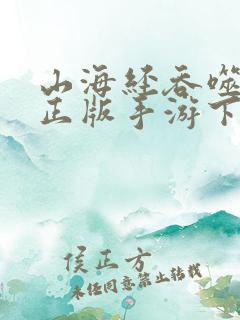 山海经吞噬
正版手游下
侯正方
未经同意禁止转载